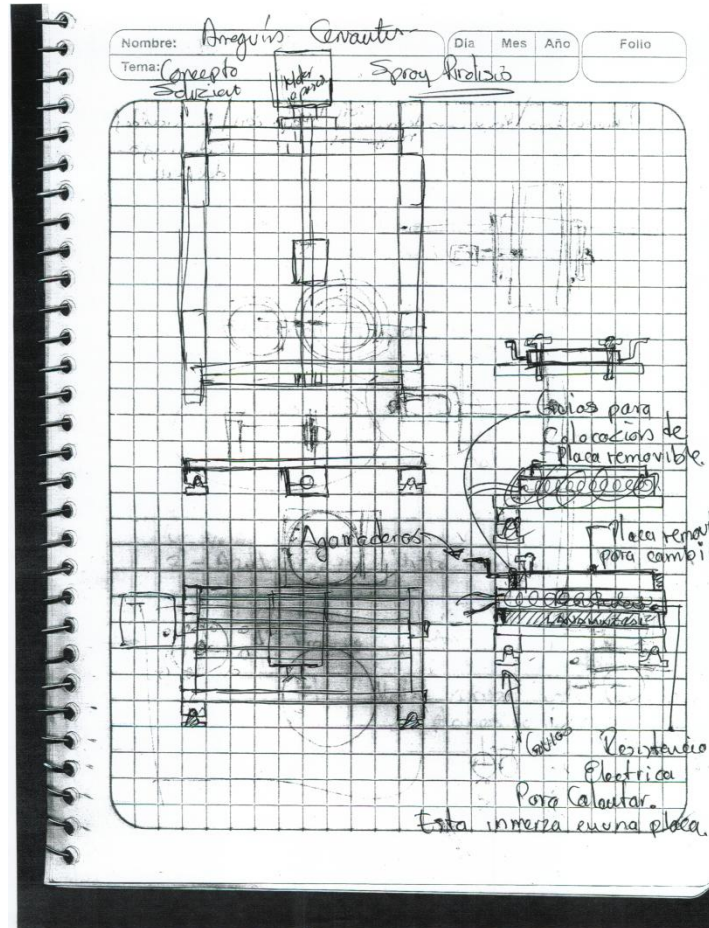 Nombre: Arreguín Cervantes
Día Mes Año Folio
Tema: Concepto Spray Pirolisis
Motor
a pasos
Guias para
Colocacion de
Placa removible.
Agarraderas
Placa remov
para cambi
Guias
Resistencia
Electrica
Para Calentar.
Esta inmerza en una placa.